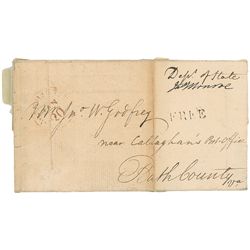 Dept. of State
Jas Monroe
Jno. W. Godfrey
FREE
near Callaghan's Post-Office
Bath County
Va